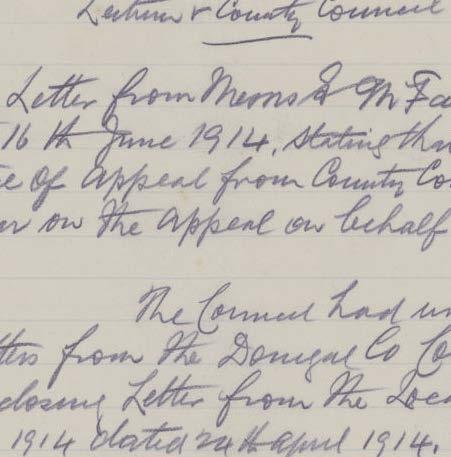 County Council
Letter from Messrs
16th June 1914, stating tha
of appeal from County Co
er on the appeal on behalf
The Council had
tters from the Donegal Co Co
closing Letter from the Loca
1914 dated 24th april 1914.